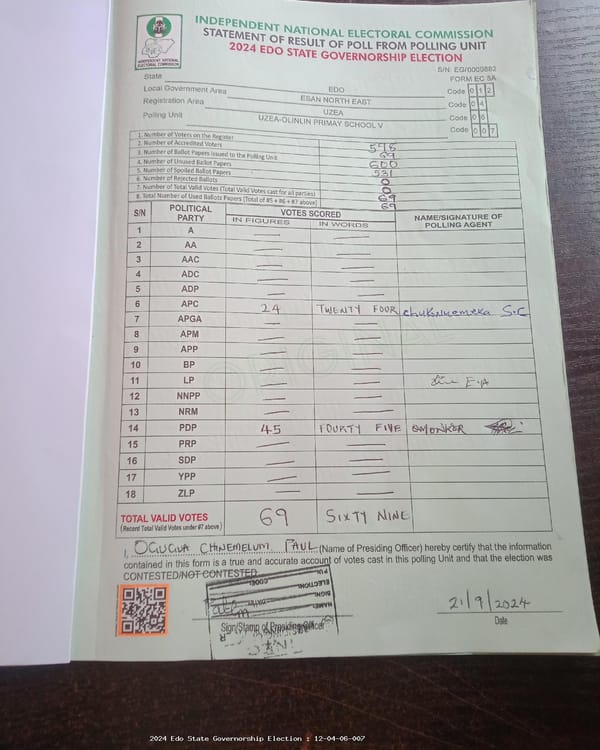 INDEPENDENT NATIONAL ELECTORAL COMMISSION
STATEMENT OF RESULT OF POLL FROM POLLING UNIT
2024 EDO STATE GOVERNORSHIP ELECTION
INDEPENDENT NATIONAL ELECTORAL COMMISSION
S/N: EG/0009882
FORM EC 8A
State EDO Code 012
Local Government Area ESAN NORTH EAST Code 04
Registration Area UZEA Code 06
Polling Unit UZEA-OLINLIN PRIMAY SCHOOL V Code 007
1. Number of Voters on the Register 595
2. Number of Accredited Voters 69
3. Number of Ballot Papers issued to the Polling Unit 600
4. Number of Unused Ballot Papers 531
5. Number of Spoiled Ballot Papers 0
6. Number of Rejected Ballots 0
7. Number of Total Valid Votes (Total Valid Votes cast for all parties) 69
8. Total Number of Used Ballots Papers (Total of #5 + #6 + #7 above) 69
S/N POLITICAL PARTY VOTES SCORED NAME/SIGNATURE OF POLLING AGENT
IN FIGURES IN WORDS
1 A
2 AA
3 AAC
4 ADC
5 ADP
6 APC 24 TWENTY FOUR Chukwuemeka S.C
7 APGA
8 APM
9 APP
10 BP
11 LP E.A
12 NNPP
13 NRM
14 PDP 45 FOURTY FIVE
15 PRP
16 SDP
17 YPP
18 ZLP
TOTAL VALID VOTES 69 SIXTY NINE
(Record Total Valid Votes under #7 above)
I, OGUGUA CHINEMELUM PAUL (Name of Presiding Officer) hereby certify that the information
contained in this form is a true and accurate account of votes cast in this polling Unit and that the election was
CONTESTED/NOT CONTESTED
Sign/Stamp of Presiding Officer
21/9/2024
Date
2024 Edo State Governorship Election : 12-04-06-007